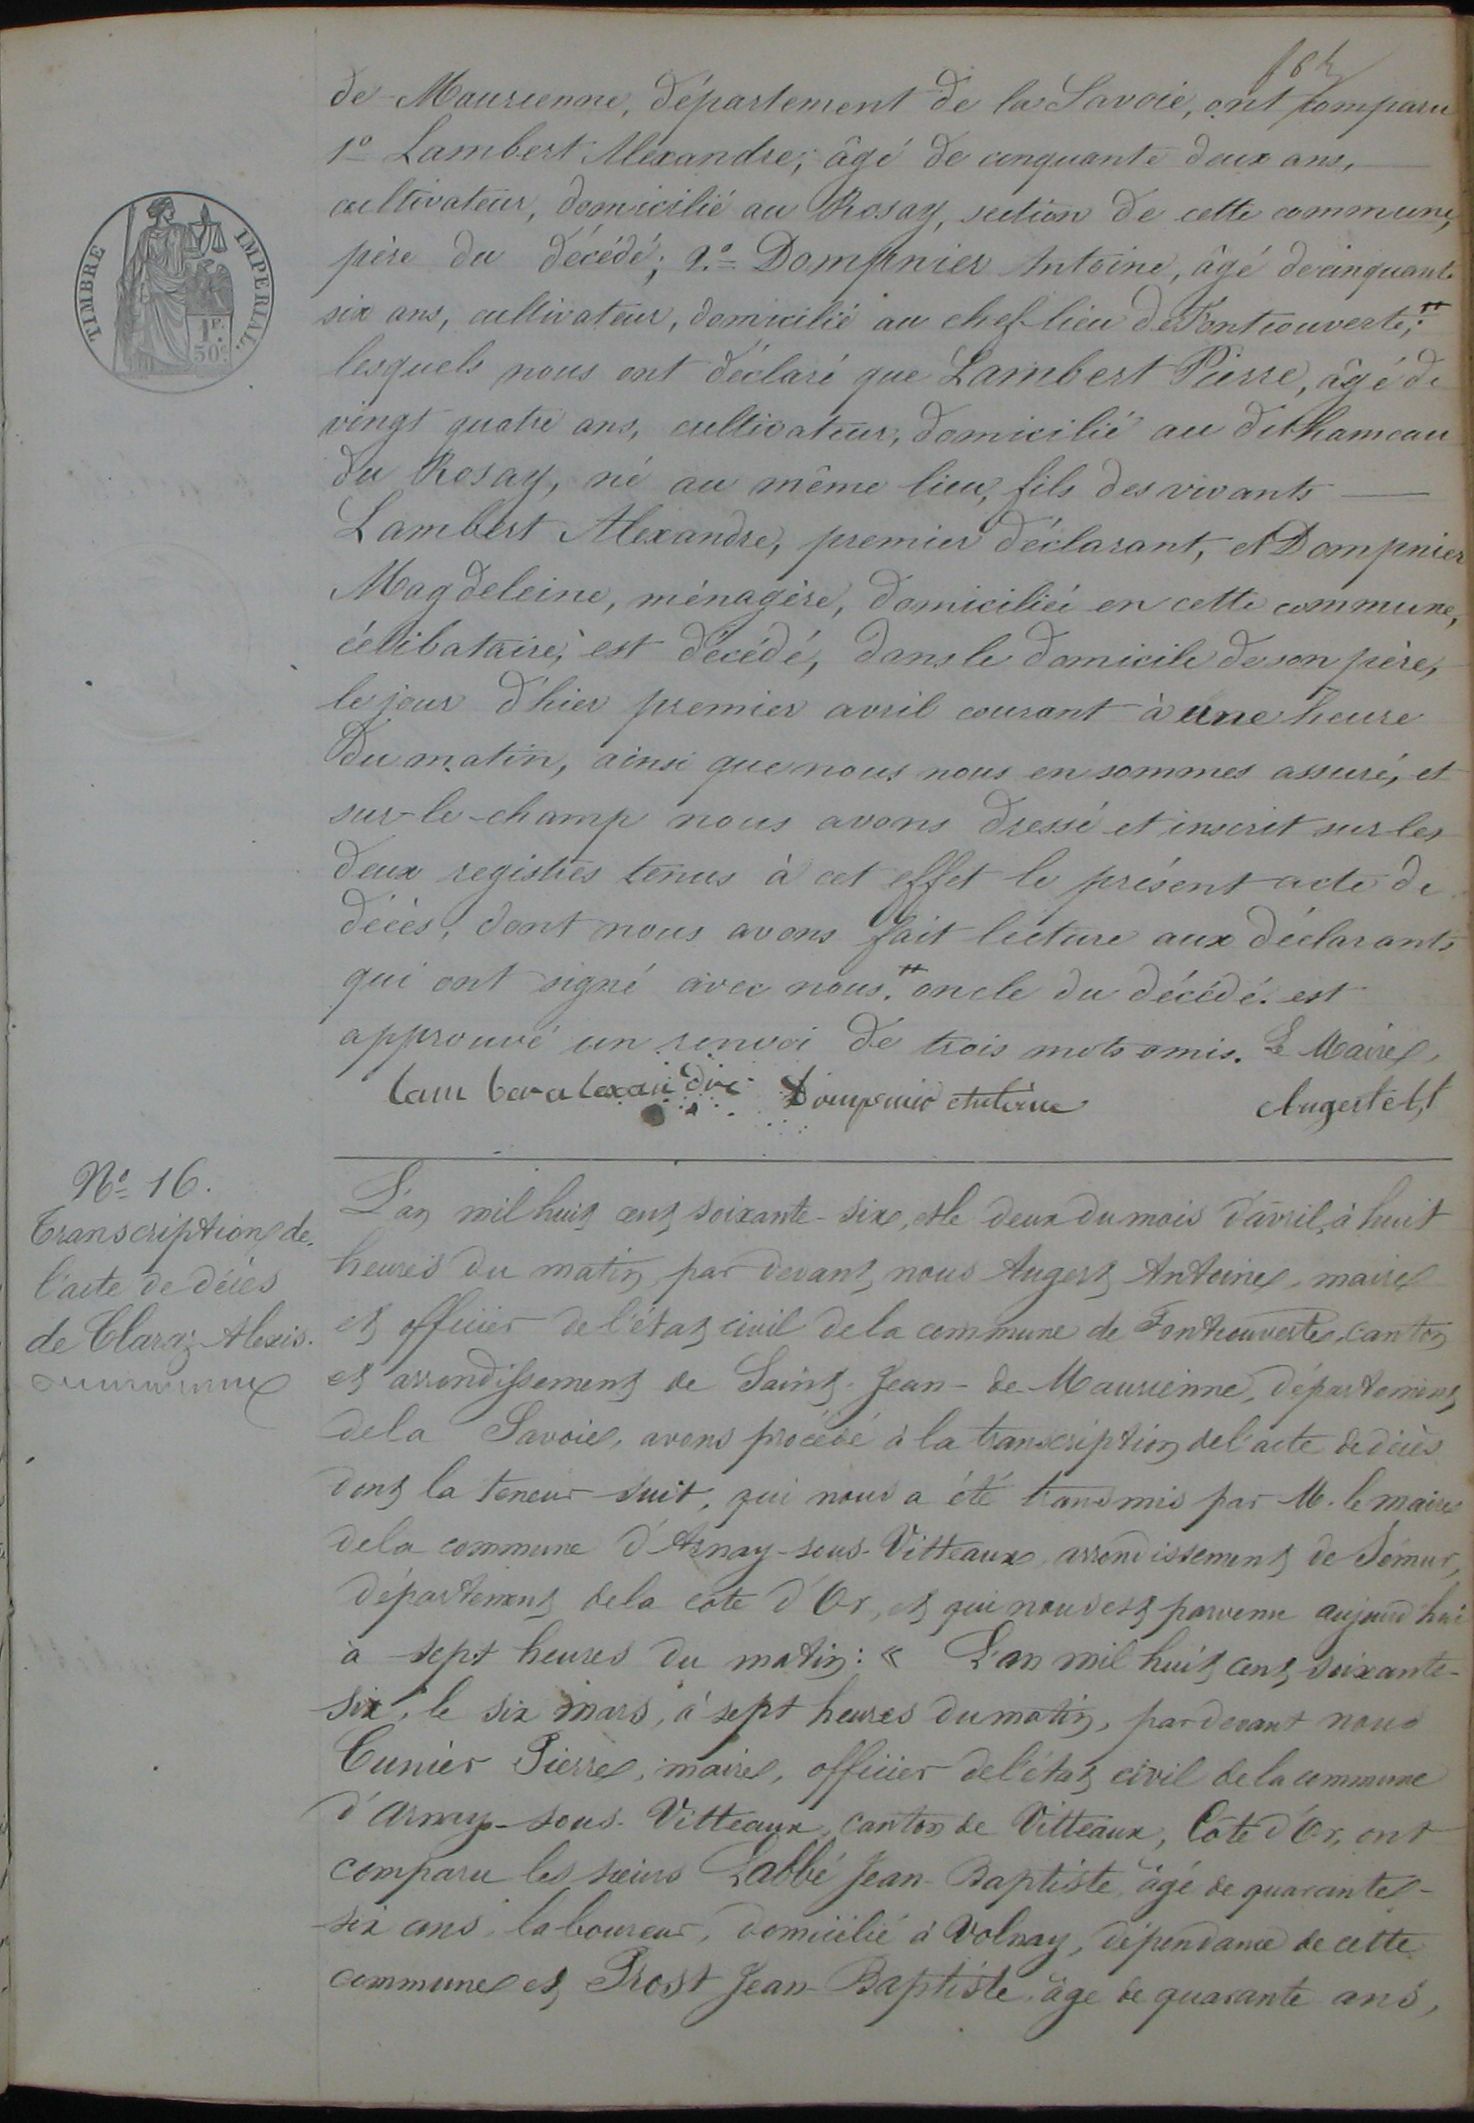 de Maurienne, département de la Savoie, ont comparu
1º Lambert Alexandre, âgé de cinquante deux ans,
cultivateur, domicilié au Rosay, section de cette commune,
père du décédé; 2º Dompnier Antoine, âgé de cinquante
six ans, cultivateur, domicilié au chef-lieu de Fontcouverte; ++
lesquels nous ont déclaré que Lambert Pierre, âgé de
vingt quatre ans, cultivateur, domicilié au dit hameau
du Rosay, né au même lieu, fils des vivants
Lambert Alexandre, premier déclarant, et Dompnier
Magdeleine, ménagère, domiciliée en cette commune,
célibataire, est décédé, dans le domicile de son père,
le jour d'hier premier avril courant à une heure
du matin, ainsi que nous nous en sommes assuré, et
sur-le-champ nous avons dressé et inscrit sur les
deux registres tenus à cet effet le présent acte de
décès, dont nous avons fait lecture aux déclarants
qui ont signé avec nous. ++ oncle du décédé. est
approuvé un renvoi de trois mots omis. Le Maire,
lam ber alexan dre Dompnier Antoine Augert Ant
TIMBRE IMPERIAL.
1F. 50c.
Nº 16.
Transcription de
l'acte de décès
de Claraz Alexis.
L'an mil huit cent soixante-six, et le deux du mois d'avril, à huit
heures du matin, par devant nous Augert Antoine, maire
et officier de l'état civil de la commune de Fontcouverte, canton
et arrondissement de Saint-Jean-de-Maurienne, département
de la Savoie, avons procédé à la transcription de l'acte de décès
dont la teneur suit, qui nous a été transmis par M. le maire
de la commune d'Arnay-sous-Vitteaux, arrondissement de Sémur,
département de la cote d'Or, et qui nous est parvenu aujourd'hui
à sept heures du matin: « L'an mil huit cent soixante-
six, le six mars, à sept heures du matin, pardevant nous
Cunier Pierre, maire, officier de l'état civil de la commune
d'Arnay-sous-Vitteaux, canton de Vitteaux, Côte d'Or, ont
comparu les sieurs Labbé Jean-Baptiste, âgé de quarante-
six ans, laboureur, domicilié à Volnay, dépendance de cette
commune et Prost Jean-Baptiste, âgé de quarante ans,